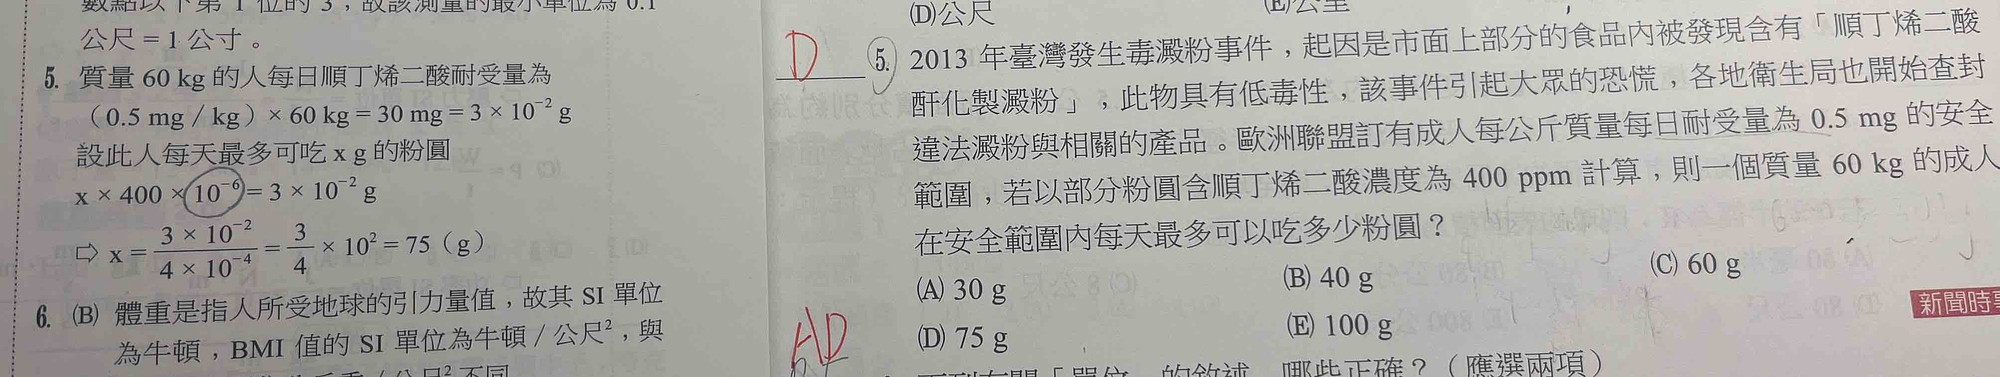 數點以下第 1 位的 3，故該測量的最小單位為 0.1
公尺 = 1 公寸。
5. 質量 60 kg 的人每日順丁烯二酸耐受量為
（0.5 mg / kg）× 60 kg = 30 mg = 3 × 10⁻² g
設此人每天最多可吃 x g 的粉圓
x × 400 × 10⁻⁶ = 3 × 10⁻² g
⇨ x = 3 × 10⁻² / 4 × 10⁻⁴ = 3/4 × 10² = 75（g）
6. (B) 體重是指人所受地球的引力量值，故其 SI 單位
為牛頓，BMI 值的 SI 單位為牛頓 / 公尺²，與
(D)公尺
(E)公里
D 5. 2013 年臺灣發生毒澱粉事件，起因是市面上部分的食品內被發現含有「順丁烯二酸
酐化製澱粉」，此物具有低毒性，該事件引起大眾的恐慌，各地衛生局也開始查封
違法澱粉與相關的產品。歐洲聯盟訂有成人每公斤質量每日耐受量為 0.5 mg 的安全
範圍，若以部分粉圓含順丁烯二酸濃度為 400 ppm 計算，則一個質量 60 kg 的成人
在安全範圍內每天最多可以吃多少粉圓？
(A) 30 g
(B) 40 g
(C) 60 g
(D) 75 g
(E) 100 g
新聞時事
AD
下列有關「單位」的敘述，哪些正確？（應選兩項）